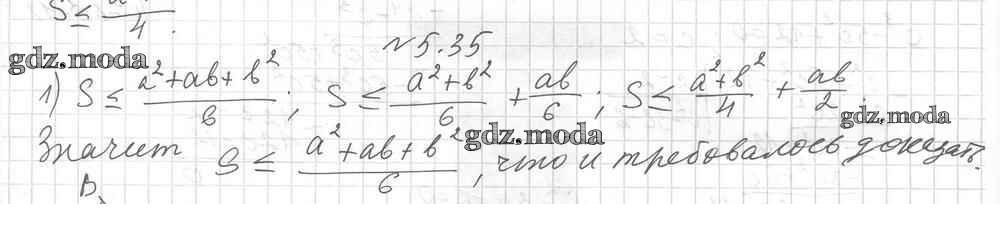 S ≤ —/4.
N 5.35
gdz.moda
1) S ≤ (a²+ab+b²)/6; S ≤ (a²+b²)/6 + ab/6; S ≤ (a²+b²)/4 + ab/2.
gdz.moda
Значит S ≤ (a²+ab+b²)/6, что и требовалось доказать.
gdz.moda
B